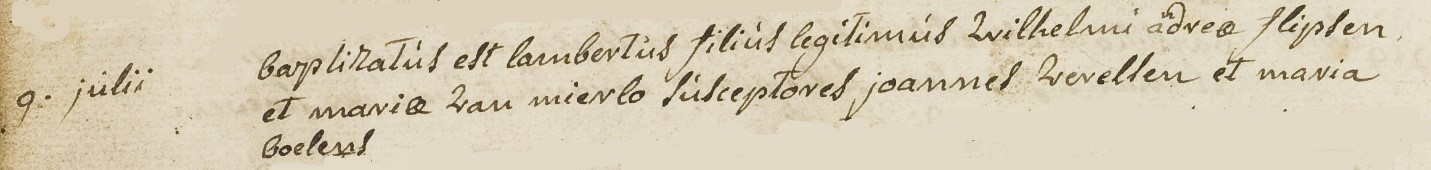 9. julii baptizatus est lambertus filius legitimus Wilhelmi adreæ flipsen
et mariæ van mierlo susceptores joannes verelsen et maria
boelens